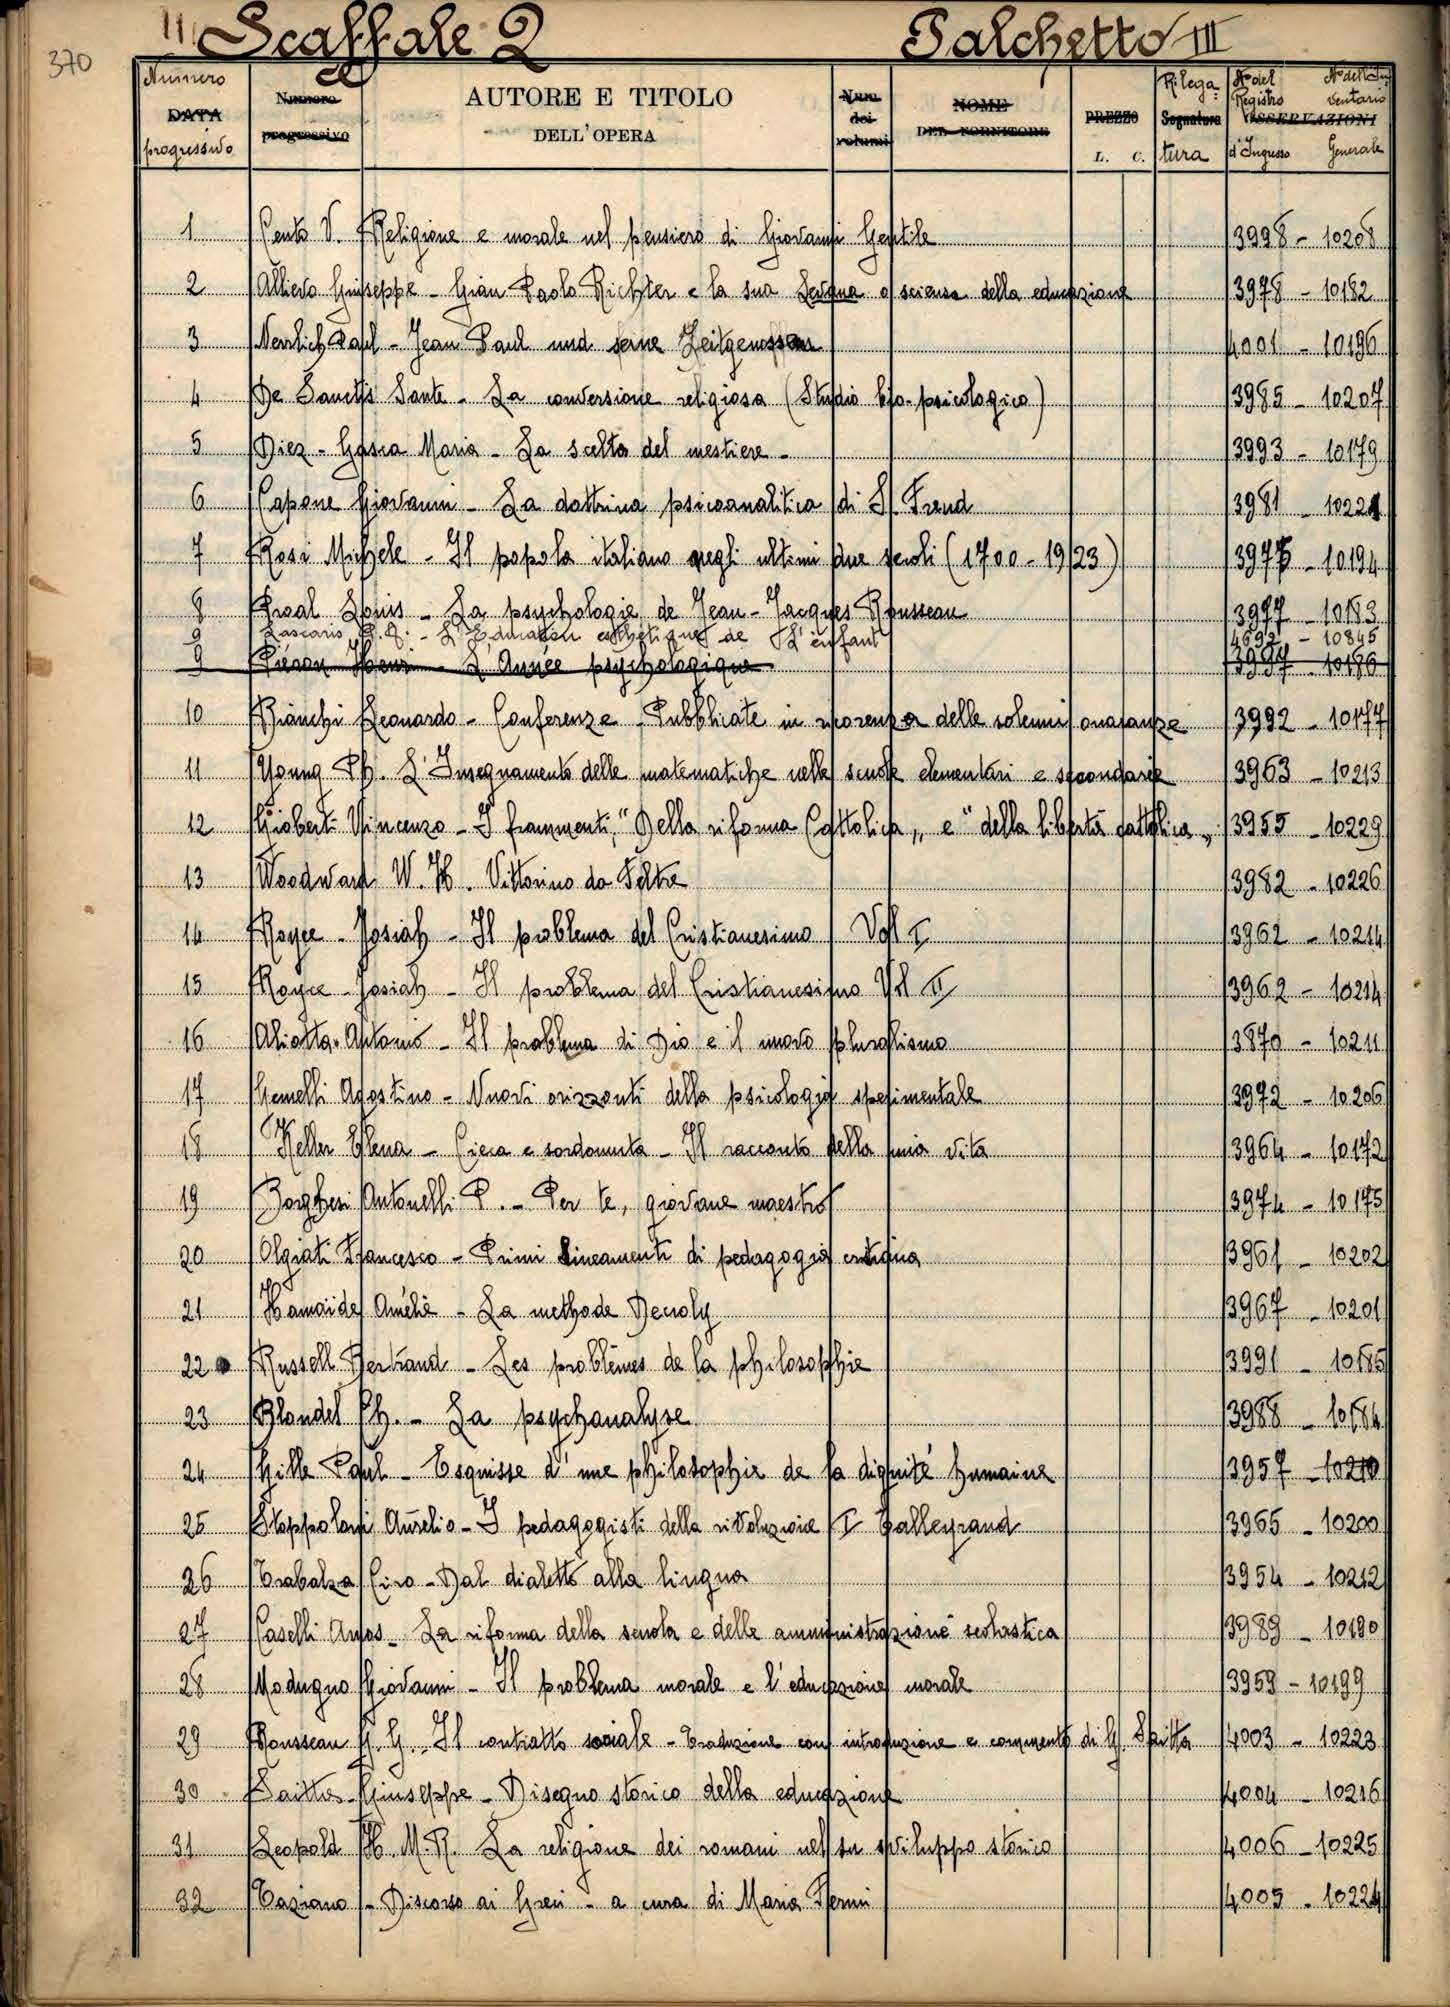 370
11 Scaffale 2 Palchetto III
Numero DATA progressivo
Numero progressivo
AUTORE E TITOLO
DELL'OPERA
Num. dei volumi
NOME DEL FORNITORE
PREZZO
L. C.
Rilega= Segnatura tura
N° del Registro d'Ingresso
N° dell'In= ventario Generale
OSSERVAZIONI
1 Cento V. Religione e morale nel pensiero di Giovanni Gentile 3998 - 10208
2 Allievo Giuseppe - Gian Paolo Richter e la sua Levana o scienza della educazione 3978 - 10182
3 Nerrlich Paul - Jean Paul und seine Zeitgenossen 4001 - 10196
4 De Sanctis Sante - La conversione religiosa (Studio bio-psicologico) 3985 - 10207
5 Diez - Gasca Maria - La scelta del mestiere - 3993 - 10179
6 Capone Giovanni - La dottrina psicoanalitica di S. Freud 3981 - 10221
7 Rosi Michele - Il popolo italiano negli ultimi due secoli (1700 - 1923) 3975 - 10194
8 Proal Louis - La psychologie de Jean-Jacques Rousseau 3977 - 10183
9 Lascaris P. A. - L'Education esthetique de L'enfant 4692 - 10845
9 Piéron Henri - L'Année psychologique 3997 - 10186
10 Bianchi Leonardo - Conferenze - Pubblicate in ricorenza delle solenni onoranze 3992 - 10177
11 Young Ph. L'Insegnamento delle matematiche nelle scuole elementari e secondarie 3963 - 10213
12 Gioberti Vincenzo - I frammenti, "Della riforma Cattolica„ e "della libertà cattolica„ 3955 - 10229
13 Woodward W. H. Vittorino da Feltre 3982 - 10226
14 Royce - Josiah - Il problema del Cristianesimo Vol I 3962 - 10214
15 Royce - Josiah - Il problema del Cristianesimo Vol II 3962 - 10214
16 Aliotta Antonio - Il problema di Dio e il nuovo pluralismo 3870 - 10211
17 Gemelli Agostino - Nuovi orizzonti della psicologia sperimentale 3972 - 10206
18 Keller Elena - Cieca e sordomuta - Il racconto della mia vita 3964 - 10172
19 Borghesi Antonelli P. - Per te, giovane maestro 3974 - 10175
20 Olgiati Francesco - Primi lineamenti di pedagogia cristiana 3961 - 10202
21 Hamaïde Amélie - La methode Decroly 3967 - 10201
22 Russell Bertrand - Les problèmes de la philosophie 3991 - 10185
23 Blondel Ch. - La psychanalyse 3988 - 10184
24 Gille Paul - Esquisse d'une philosophie de la dignité humaine 3957 - 10210
25 Stoppoloni Aurelio - I pedagogisti della rivoluzione I Talleyrand 3965 - 10200
26 Trabalza Ciro - Dal dialetto alla lingua 3954 - 10212
27 Caselli Amos - La riforma della scuola e delle amministrazione scolastica 3989 - 10190
28 Modugno Giovanni - Il problema morale e l'educazione morale 3959 - 10199
29 Rousseau G. G. Il contratto sociale - Traduzione con introduzione e commento di G. Saitta 4003 - 10223
30 Saitta - Giuseppe - Disegno storico della educazione 4004 - 10216
31 Leopold H. M. R. La religione dei romani nel su sviluppo storico 4006 - 10225
32 Taziano - Discorso ai Greci - a cura di Maria Fermi 4005 - 10224